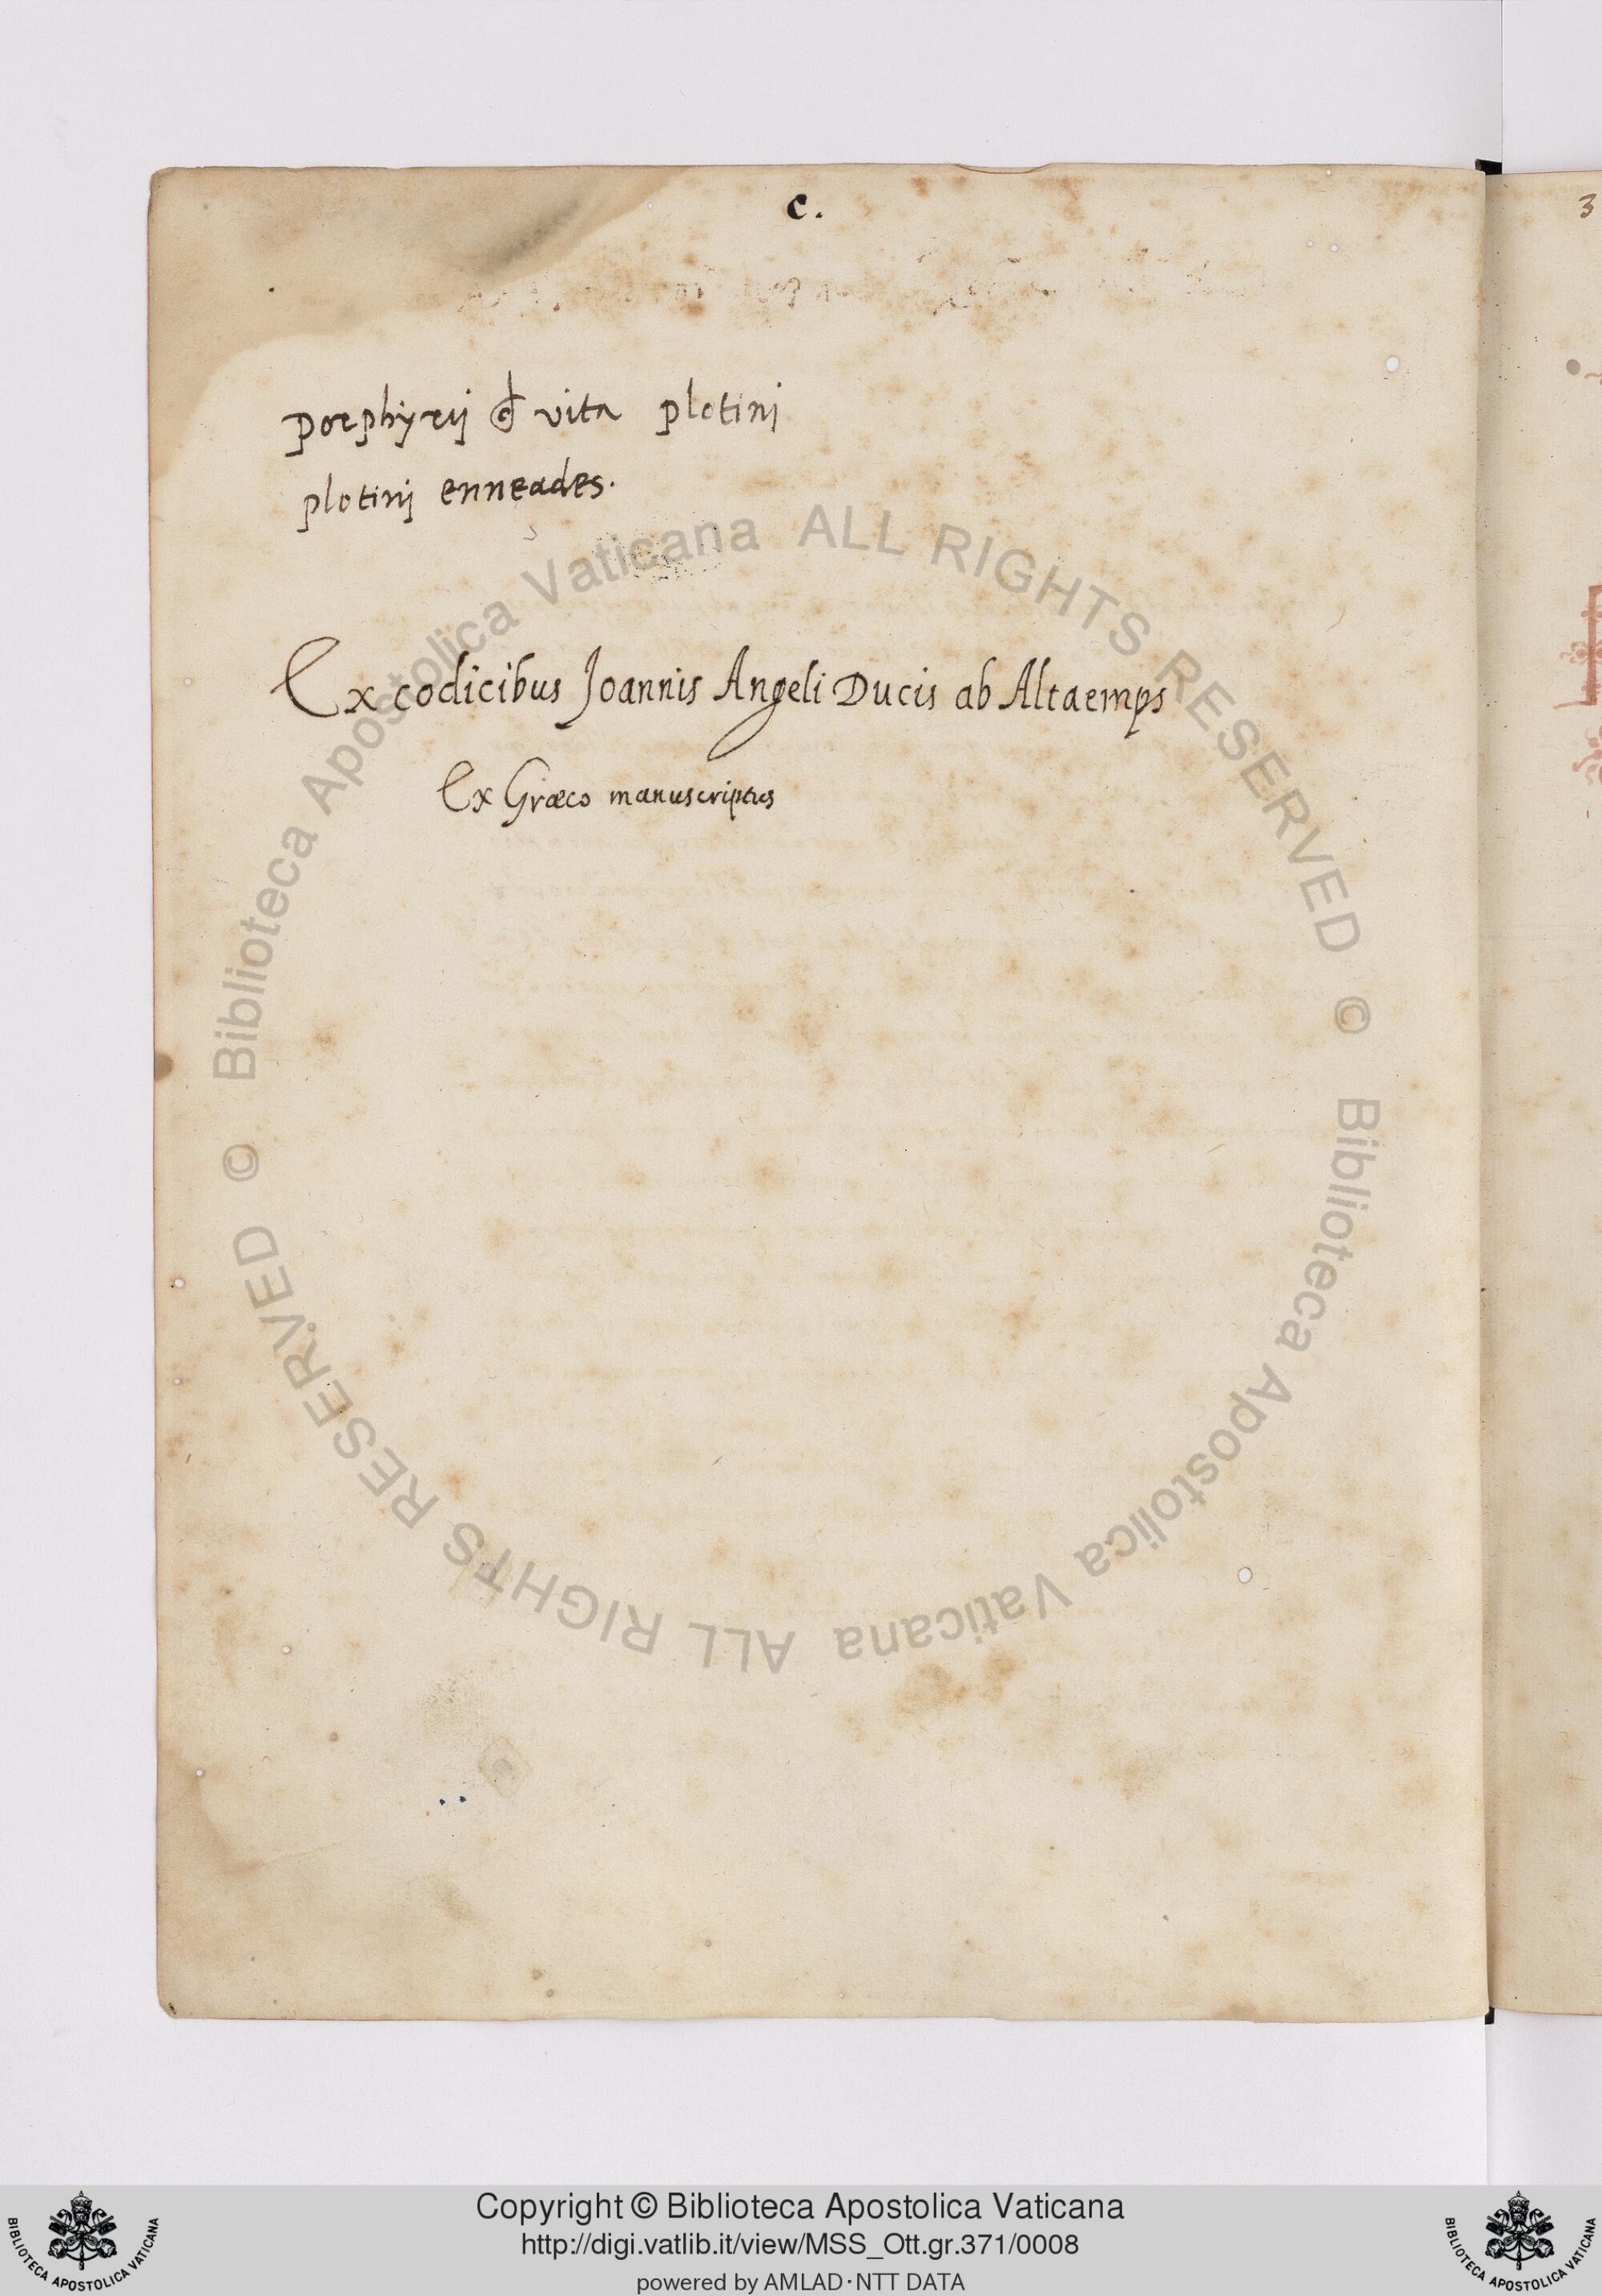 c.
3
porphyrij de vita plotinj
plotinj enneades.
Ex codicibus Joannis Angeli Ducis ab Altaemps
Ex Græco manuscriptus
© Biblioteca Apostolica Vaticana ALL RIGHTS RESERVED
© Biblioteca Apostolica Vaticana ALL RIGHTS RESERVED
Copyright © Biblioteca Apostolica Vaticana
http://digi.vatlib.it/view/MSS_Ott.gr.371/0008
powered by AMLAD·NTT DATA
BIBLIOTECA APOSTOLICA VATICANA
BIBLIOTECA APOSTOLICA VATICANA